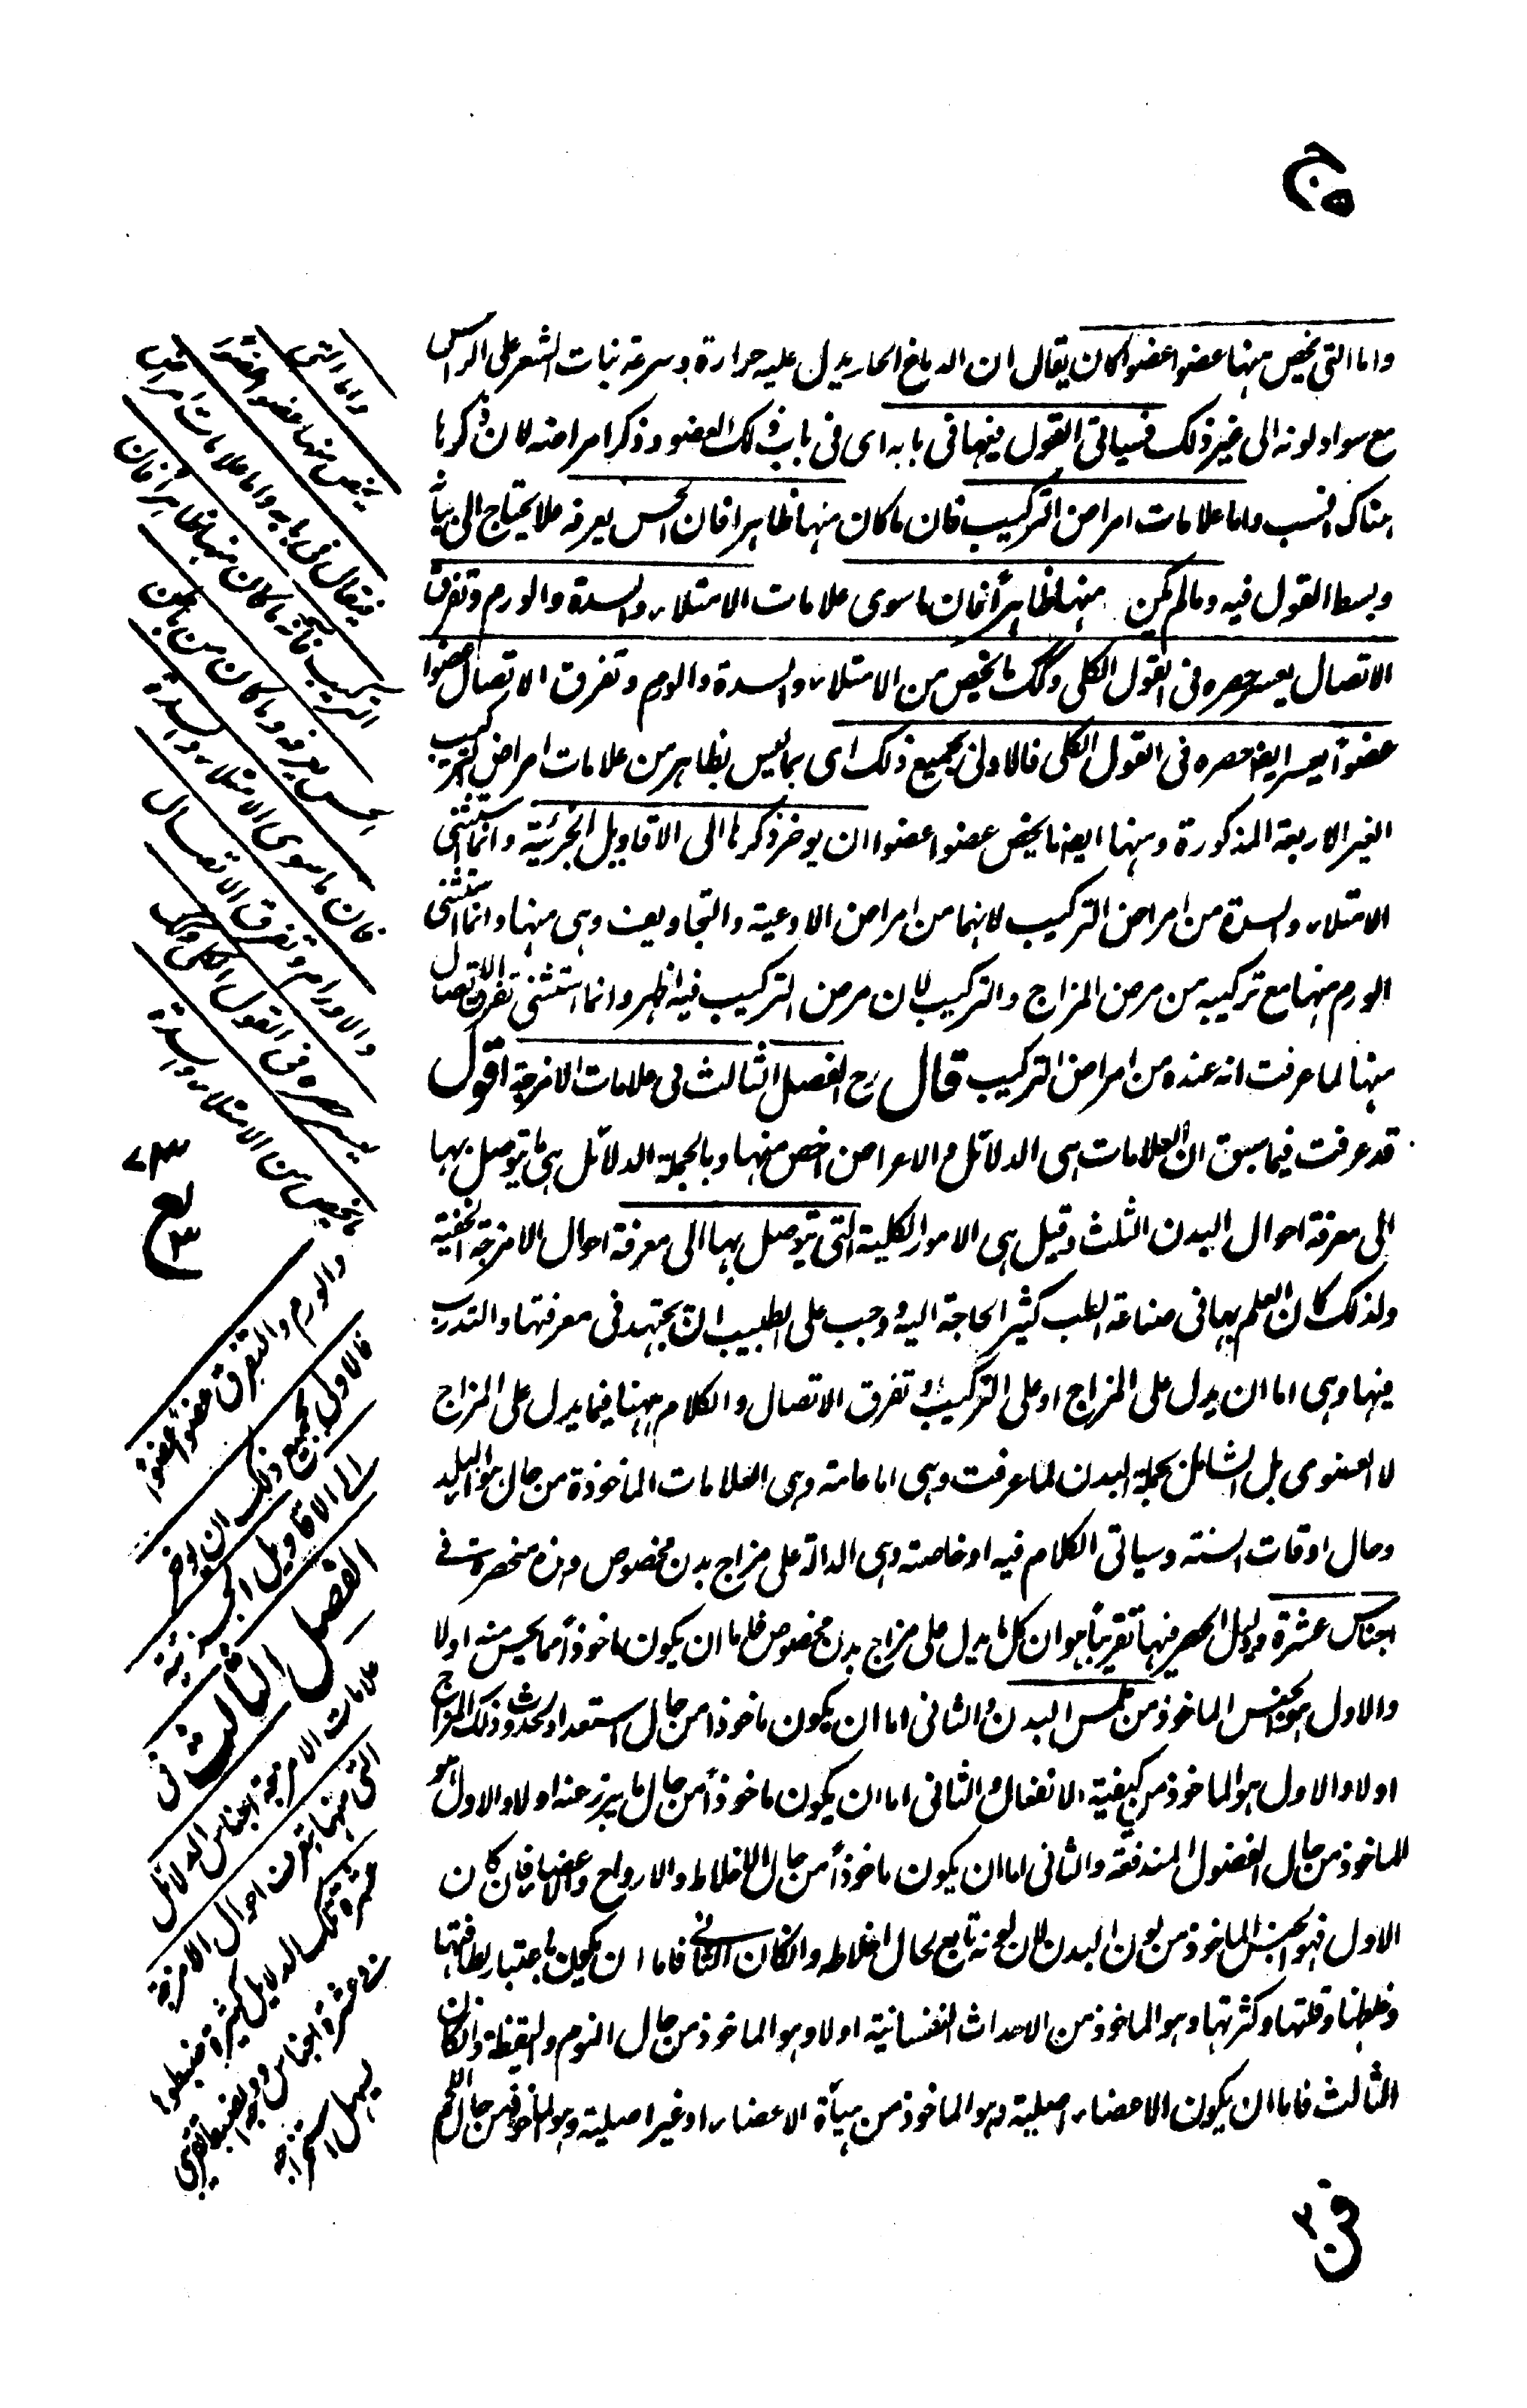 واما التى تخص منها عضوا عضوا كان يقال ان الدماغ الحار يدل عليه حرارة وسرعة نبات الشعر على الراس
مع سواد لونه الى غير ذلك فسياتى القول فيها فى بابه اى فى باب ذلك العضو وذكر امراضه لان ذكرها
هناك انسب واما علامات امراض التركيب فان ما كان منها ظاهرا فان الحس يعرفه فلا يحتاج الى
وبسط القول فيه وما لم يكن منها ظاهراً فان ما سوى علامات الامتلاء والسدة والورم وتفرق
الاتصال يعسر حصره فى القول الكلى وكذلك ما يخص من الامتلاء والسدة والورم وتفرق الاتصال عضوا
عضواً يعسر ايضا حصره فى القول الكلى فالاولى بجميع ذلك اى بما ليس بظاهر من علامات امراض التركيب
الغير الاربعة المذكورة ومنها ايضا ما يخص عضوا عضوا ان يوخر ذكرها الى الاقاويل الجزئية وانما استثنى
الامتلاء والسدة من امراض التركيب لانهما من امراض الاوعية والتجاويف وهى منها وانما استثنى
الورم منها مع تركيبه من مرض المزاج والتركيب لان مرض التركيب فيه اظهر وانما استثنى تفرق الاتصال
منها لما عرفت انه عنده من امراض التركيب قال رح الفصل الثالث فى علامات الامزجة اقول
قد عرفت فيما سبق ان العلامات هى الدلائل والاعراض اخص منها وبالجملة الدلائل هى ما يتوصل بها
الى معرفة احوال البدن الثلث وقيل هى الامور الكلية التى يتوصل بها الى معرفة احوال الامزجة الخفية
ولذلك كان العلم بها فى صناعة الطب كثير الحاجة اليه ووجب على الطبيب ان يجتهد فى معرفتها والتدرب
فيها وهى اما ان يدل على المزاج او على التركيب او تفرق الاتصال والكلام ههنا فيما يدل على المزاج
لا العضوى بل الشامل لجملة البدن لما عرفت وهى اما عامة وهى العلامات الماخوذة من حال هواء البلد
وحال اوقات السنة وسياتى الكلام فيه او خاصة وهى الدالة على مزاج بدن مخصوص وهذه منحصرة فى
اجناس عشرة ودليل الحصر فيها تقريباً هو ان كل ما يدل على مزاج بدن مخصوص فاما ان يكون ماخوذاً مما يحس منه اولا
والاول هو الجنس الماخوذ من ملمس البدن والثانى اما ان يكون ماخوذاً من حال استعداد لحدوث ذلك المزاج
اولا والاول هو الماخوذ من كيفية الانفعال والثانى اما ان يكون ماخوذاً من حال ما يبرز عنه اولا والاول هو
الماخوذ من حال الفضول المندفعة والثانى اما ان يكون ماخوذاً من حال الاخلاط والارواح والاعضاء فان كان
الاول فهو الجنس الماخوذ من لون البدن لان لونه تابع لحال اخلاطه وان كان الثانى فاما ان يكون باعتبار لطافتها
وغلظها وقلتها وكثرتها وهو الماخوذ من الاحداث النفسانية اولا وهو الماخوذ من حال النوم واليقظة وان كان
الثالث فاما ان يكون الاعضاء اصلية وهو الماخوذ من هيأة الاعضاء او غير اصلية وهو الماخوذ من حال اللحم
واما التى
يخص منها عضوا عضوا
فيقال فى بابه واما علامات امراض
التركيب فانه ما كان منها ظاهرا فان
الحس يعرفه وما كان من باطن
فان ما سوى الامتلاء والسدة
والاورام وتفرق الاتصال
يعسر حصره فى القول الكلى وكذلك
ما يخص من الامتلاء والسدة
والورم والتفرق عضوا عضوا
فالاولى بجميع ذلك ان يوخر
الى الاقاويل الجزئية
الفصل الثالث فى
علامات الامزجة اجناس الدلائل
التى منها يتعرف احوال الامزجة
عشرة